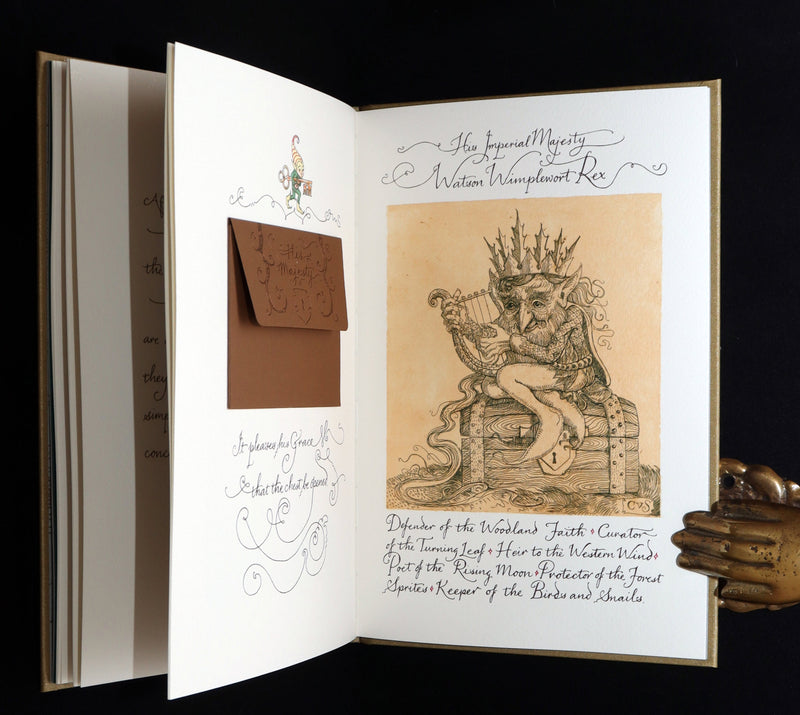 the
are
they
His
Majesty
It pleases his Grace
that the chest be opened.
His Imperial Majesty
Watson Wimplewort Rex
CVS
Defender of the Woodland Faith • Curator
of the Turning Leaf • Heir to the Western Wind •
Poet of the Rising Moon • Protector of the Forest
Sprites • Keeper of the Birds and Snails.